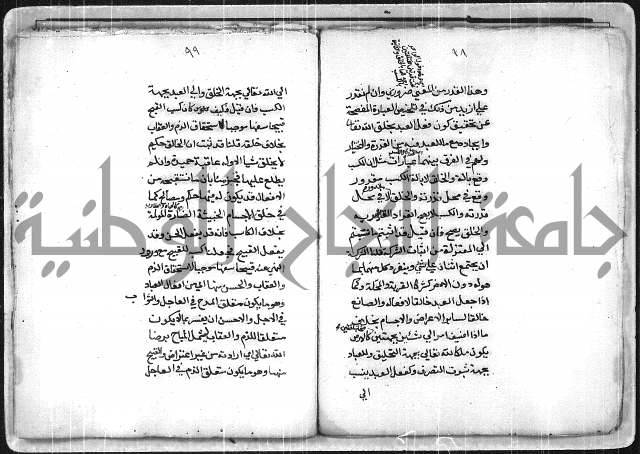 ٩٨
وهذا القدر من المعنى ضروري وان لم نقدر
على ازيد من ذلك في تلخيص العبارة المفصحة
عن تحقيق كون فعل العبد بخلق الله تعالى
وايجاده مع ما للعبد فيه من القدرة والاختيار
ولهم في الفرق بينهما عبارات مثل ان الكسب
وقع بآلة والخلق لا بآلة والكسب مقدور
وقع في محل قدرته والخلق لا في محل
قدرته والكسب لا يصح انفراد القادر به
والخلق يصح فان قيل فقد اثبتم ما نسبتم
الى المعتزلة من اثبات الشركة قلنا الشركة
ان يجتمع اثنان على شيء وينفرد كل منهما بما
هو له دون الاخر كشركاء القرية والمحلة وكما
اذا جعل العبد خالقا لافعاله والصانع
خالقا لسائر الاعراض والاجسام بخلاف
ما اذا اضيف امر الى شيئين بجهتين كالارض
يكون ملكا لله تعالى بجهة التخليق وللعباد
بجهة ثبوت التصرف وكفعل العبد ينسب
الى
٩٩
الى الله تعالى بجهة الخلق والى العبد بجهة
الكسب فان قيل فكيف كان كسب القبيح
قبيحا سفها موجبا لاستحقاق الذم والعقاب
بخلاف خلقه قلنا لانه قد ثبت ان الخالق حكيم
لا يخلق شيئا الا وله عاقبة حميدة وان لم
يطلع عليها فجزمنا بان ما نستقبحه من
الافعال قد يكون له فيها حكم ومصالح كما
في خلق الاجسام الخبيثة الضارة المؤلمة
بخلاف الكاسب فانه قد يفعل الحسن وقد
يفعل القبيح فجعلنا كسب القبيح مع ورود
النهي عنه قبيحا سفها موجبا لاستحقاق الذم
والعقاب والحسن منها اي من افعال العباد
وهو ما يكون متعلق المدح في العاجل والثواب
في الاجل والاحسن ان يفسر بما لا يكون
متعلقا للذم والعقاب ليشمل المباح برضاء
الله تعالى اي ارادته من غير اعتراض والقبيح
منها وهو ما يكون متعلق الذم في العاجل
جامعة النجاح الوطنية